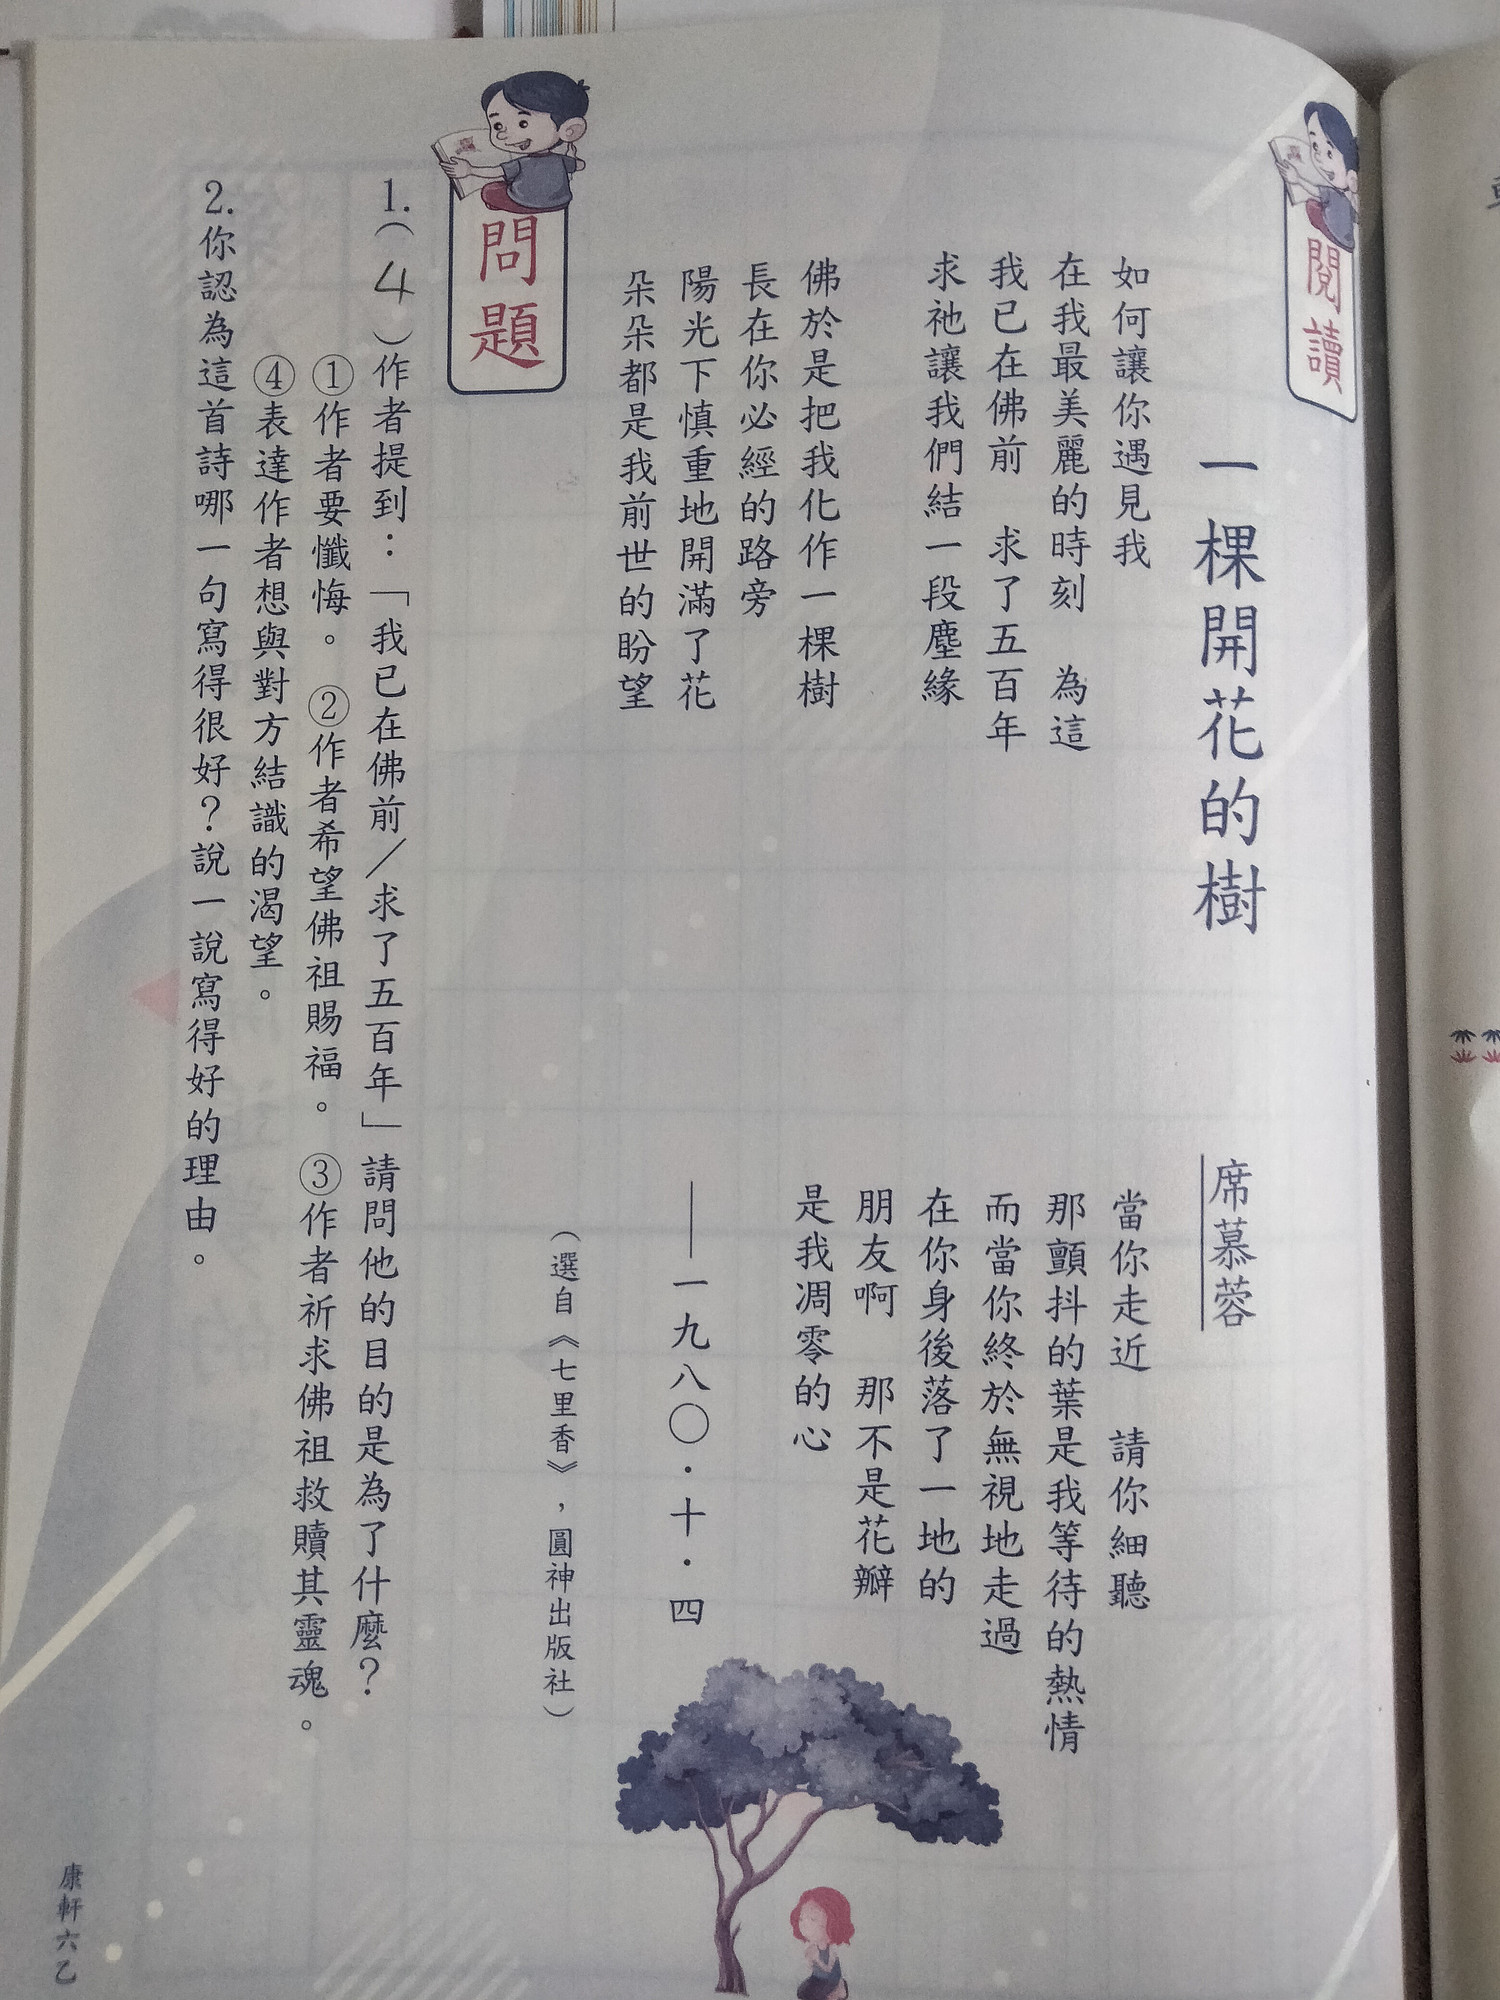 閱讀
一棵開花的樹
席慕蓉
如何讓你遇見我
在我最美麗的時刻　為這
我已在佛前　求了五百年
求祂讓我們結一段塵緣
佛於是把我化作一棵樹
長在你必經的路旁
陽光下慎重地開滿了花
朵朵都是我前世的盼望
當你走近　請你細聽
那顫抖的葉是我等待的熱情
而當你終於無視地走過
在你身後落了一地的
朋友啊　那不是花瓣
是我凋零的心
——一九八〇．十．四
（選自《七里香》，圓神出版社）
問題
1.（4）作者提到：「我已在佛前／求了五百年」請問他的目的是為了什麼？
①作者要懺悔。　②作者希望佛祖賜福。　③作者祈求佛祖救贖其靈魂。
④表達作者想與對方結識的渴望。
2.你認為這首詩哪一句寫得很好？說一說寫得好的理由。
康軒六乙